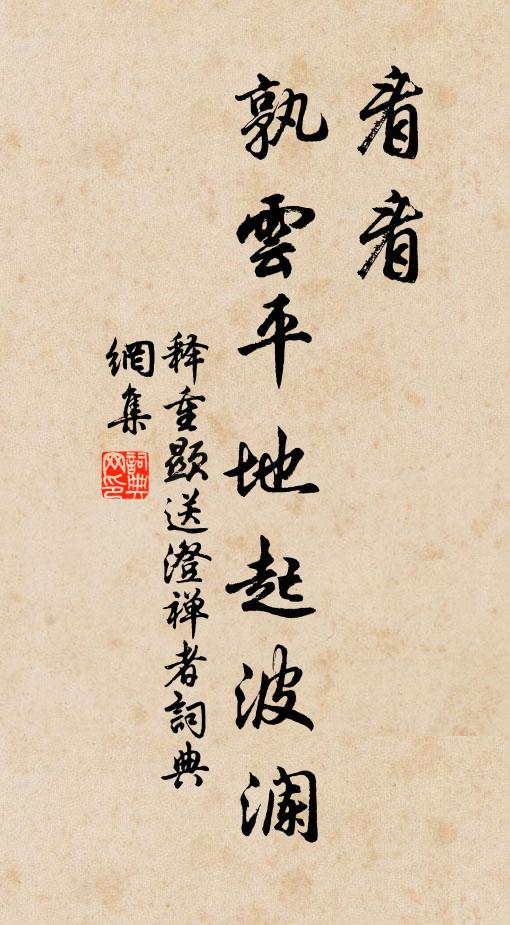 看看
孰雲平地起波澜
释重顯送澄禅者詞典
網集
詞典
网印